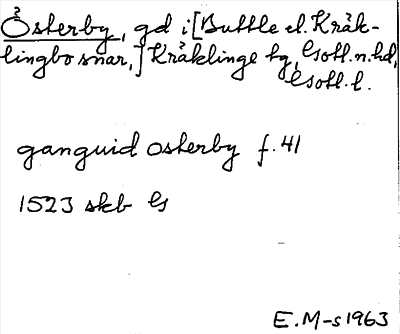 Österby, gd i [Buttle el. Kräk-
lingbo snar,] Kräklinge tg, Gotl. n. hd,
Gotl. l.
ganguid osterby f. 41
1523 skb G
E. M-s 1963